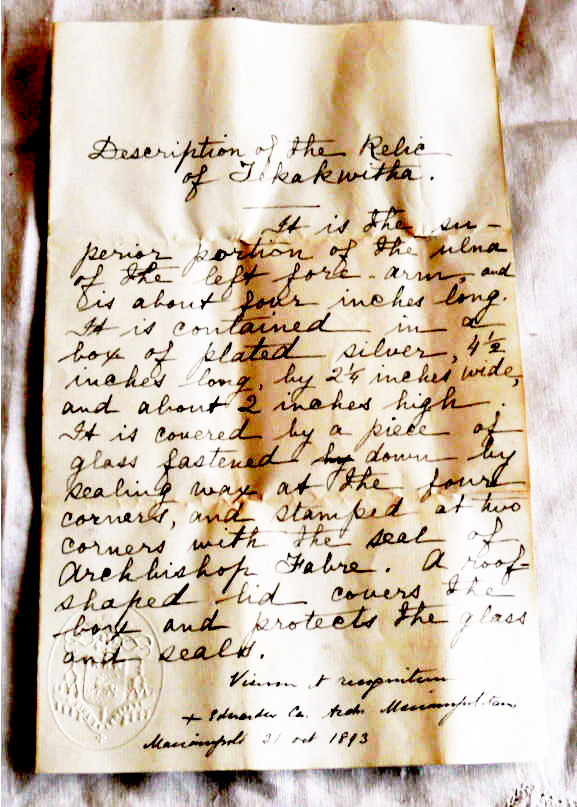 Description of the Relic
of Tekakwitha.
It is the su-
perior portion of the ulna
of the left fore-arm, and
is about four inches long.
It is contained in a
box of plated silver, 4½
inches long, by 2¼ inches wide,
and about 2 inches high.
It is covered by a piece of
glass fastened by down by
sealing wax at the four
corners, and stamped at two
corners with the seal of
Archbishop Fabre. A roof-
shaped lid covers the
box and protects the glass
and seals.
Visum & recognitum
+ Eduardus Ca. Archs Marianopolitan.
Marianopoli 21 oct 1893